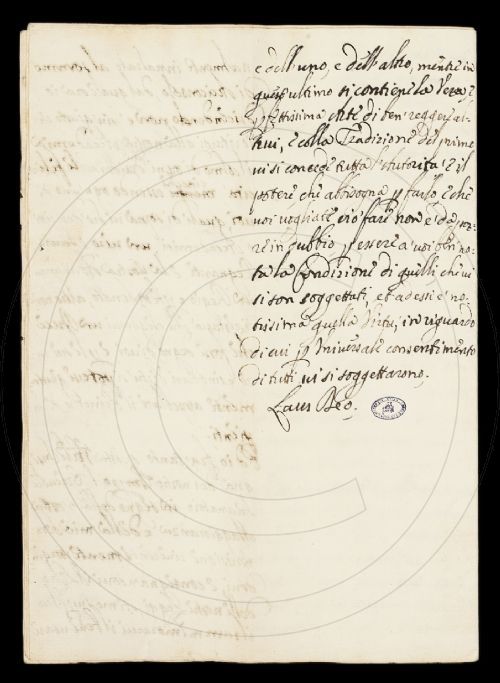 e dell'uno, e dell'altro, mentre in
quest'ultimo si contiene la Vera, e
pfettissima Arte di ben reggere al-
trui, e colla Tradizione del prime
vi si concede tutta l'Autorità, e il
potere che abbisogna p farlo, e che
voi vogliate ciò fare non è da por-
re in dubbio, p essere a voi ben no-
ta la Condizione di quelli che vi
si son soggettati, et ad essi è no-
tissima quella Virtù, in riguardo
di cui p Universale consentimento
di tutti vi si soggettarono.
Laus Deo.